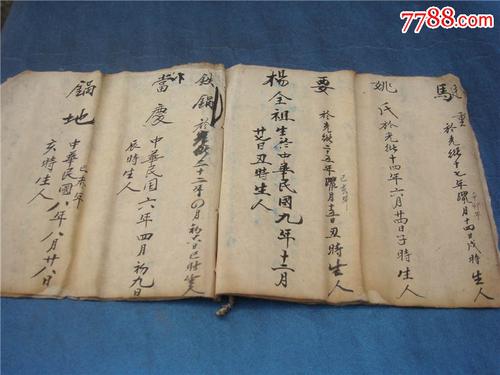 7788.com
重
辛卯年
於光緒十七年臘月十四日戌時生人
姚氏於光緒十四年六月廿四日子時生人
要
己亥年
於光緒廿五年臘月十五日丑時生人
楊全祖生於中華民國九年十二月
日丑時生人
鉄鍋於光緒三十二年四月初六日巳時生人
當慶
中華民國六年四月初九日
辰時生人
鍋地
中華民國八年八月廿八日
亥時生人